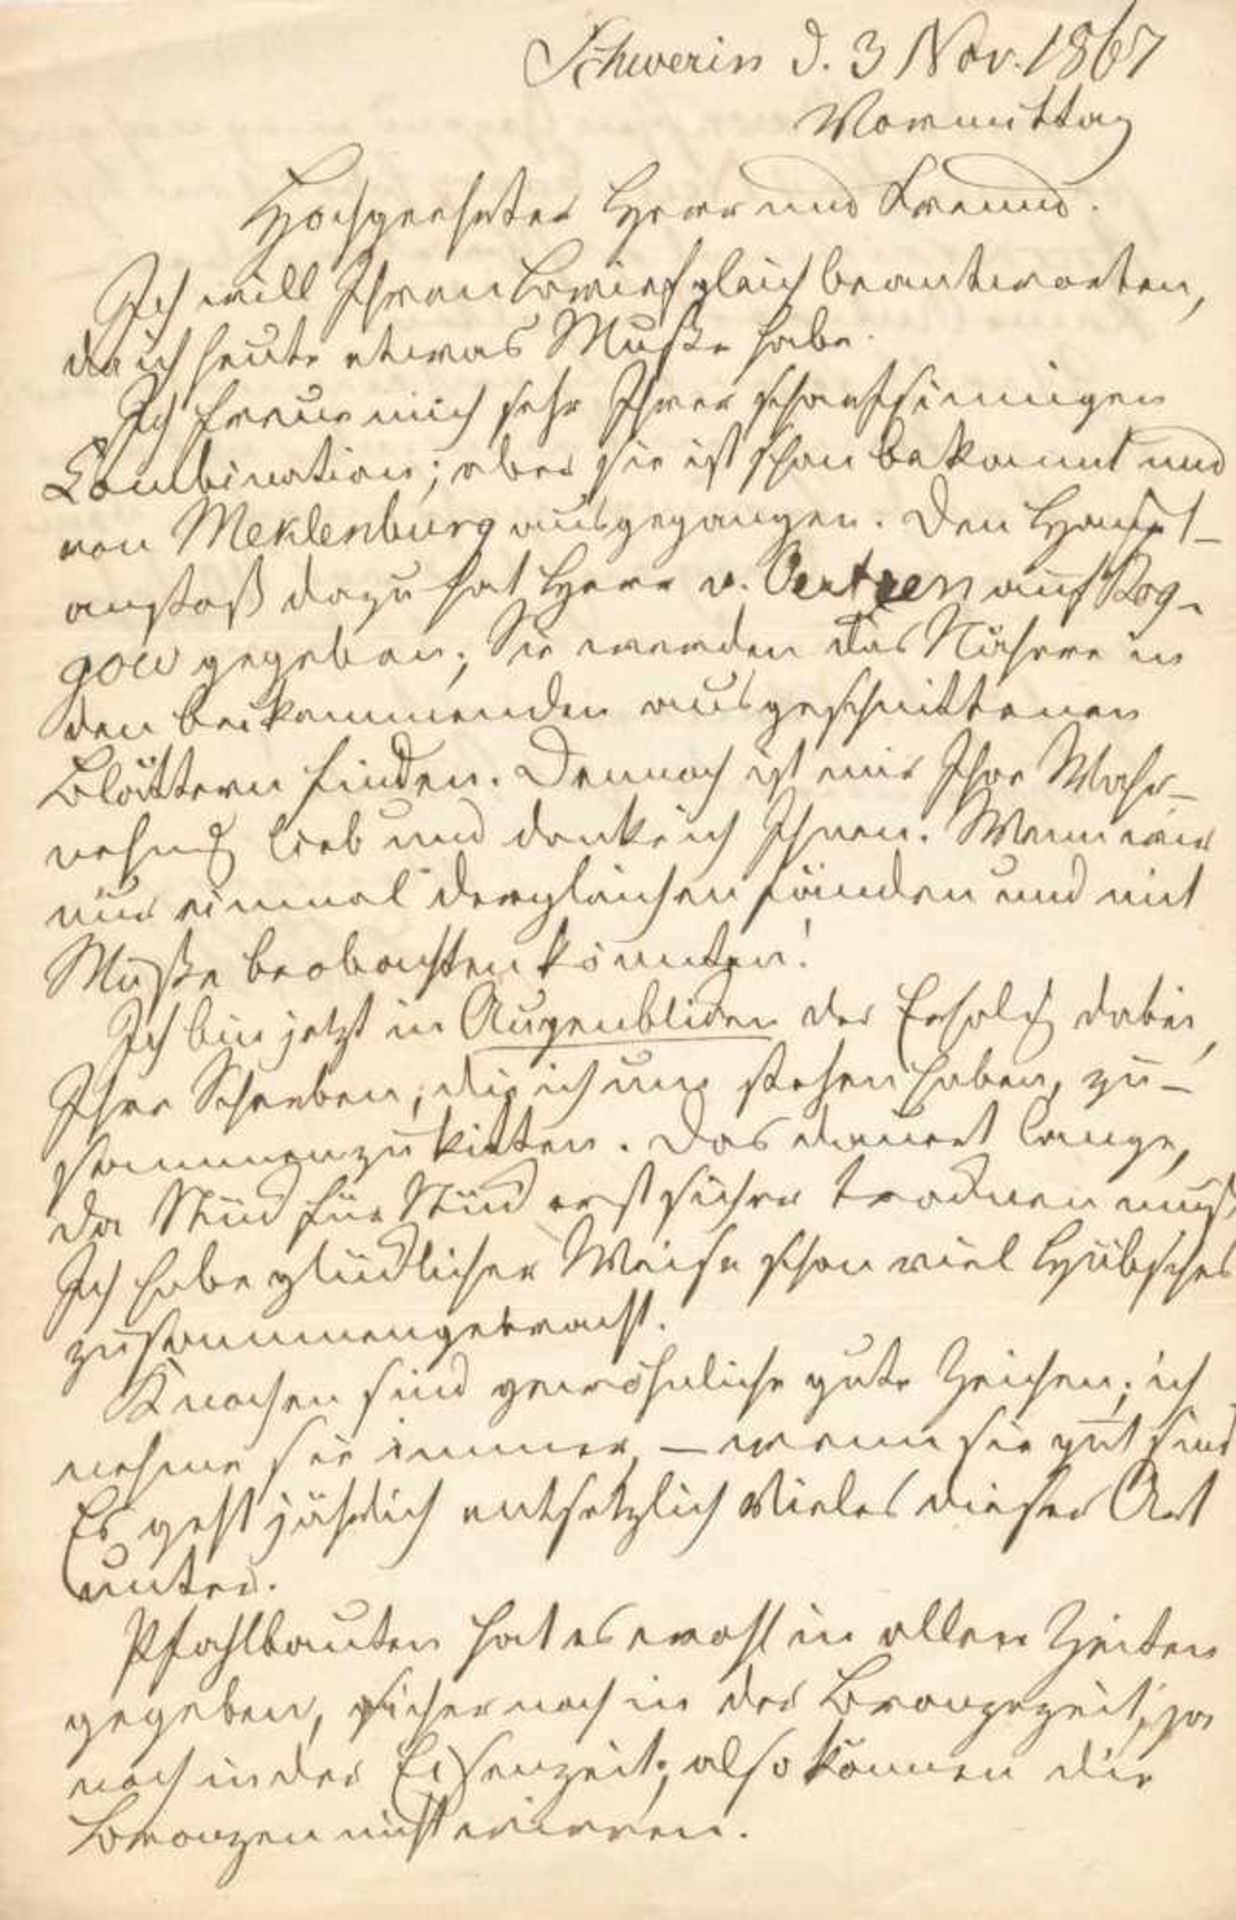 Schwerin d. 3 Nov. 1867
Vormittag
Hochgeehrter Herr und Freund.
Ich will Ihren Brief gleich beantworten,
da ich heute etwas Muße habe.
Ich freue mich sehr Ihrer scharfsinnigen
Combination; aber sie ist schon bekannt und
von Meklenburg ausgegangen. Den Haupt-
anstoß dazu hat Herr v. Oertzen auf Rog-
gow gegeben; Sie werden das Nähere in
den beikommenden ausgeschnittenen
Blättern finden. Dennoch ist mir Ihre Wahr-
nehmg lieb und danke ich Ihnen. Wenn wir
nur einmal dergleichen fänden und mit
Muße beobachten könnten!
Ich bin jetzt in Augenblicken der Erholg dabei,
Ihre Scherben, die ich nun stehen haben, zu-
sammenzukitten. Das dauert lange,
da Stück für Stück erst sicher trocknen muß.
Ich habe glücklicher Weise schon viel Hübsches
zusammengebracht.
Knochen sind gewöhnliche gute Zeichen; ich
nehme sie immer, – wenn sie gut sind
Es geht jährlich entsetzlich Vieles dieser Art
unter.
Pfahlbauten hat es wohl in allen Zeiten
gegeben, sicher noch in der Bronzezeit, ja
noch in der Eisenzeit; also können die
Bronzen nicht irren.